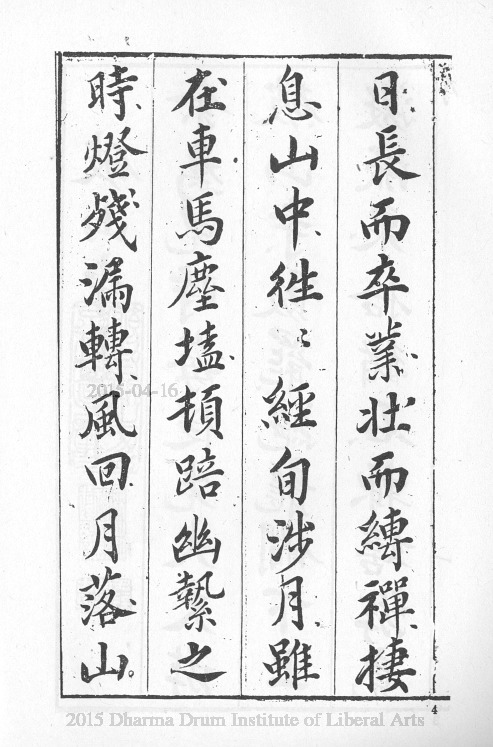 日長而卒業壯而縛禪棲
息山中徃〻經旬涉月雖
在車馬塵壒頓踣幽縶之
時燈殘漏轉風回月落山
4
2015-04-16
2015 Dharma Drum Institute of Liberal Arts